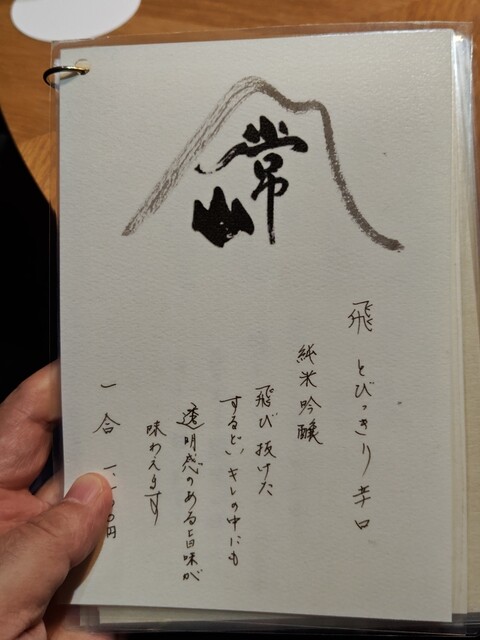 常山
飛 とびっきり辛口
純米吟醸
飛び抜けた
するどいキレの中にも
透明感のある旨味が
味わえます
一合 円